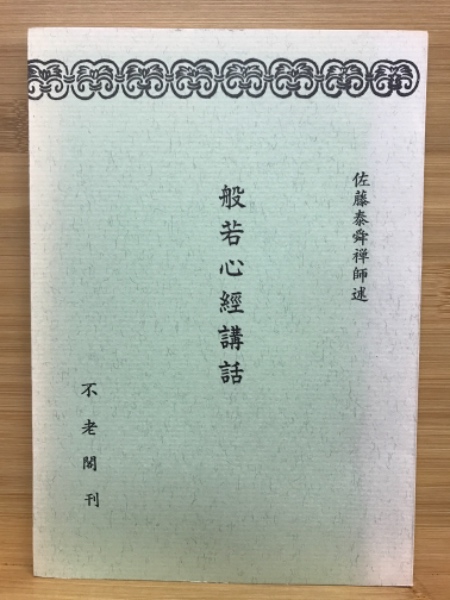 佐藤泰舜禅師述
般若心經講話
不老閣刊